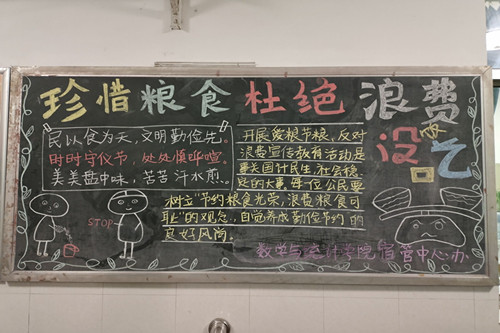 珍惜粮食 杜绝浪费
民以食为天，文明勤俭先。
时时守仪节，处处慎哗喧。
美美盘中味，苦苦汗水煎。
STOP
开展爱粮节粮、反对
浪费宣传教育活动是
事关国计民生、社会稳
定的大事。每位公民要
树立“节约粮食光荣，浪费粮食可
耻”的观念，自觉养成勤俭节约的
良好风尚。
数学与统计学院宿管中心办